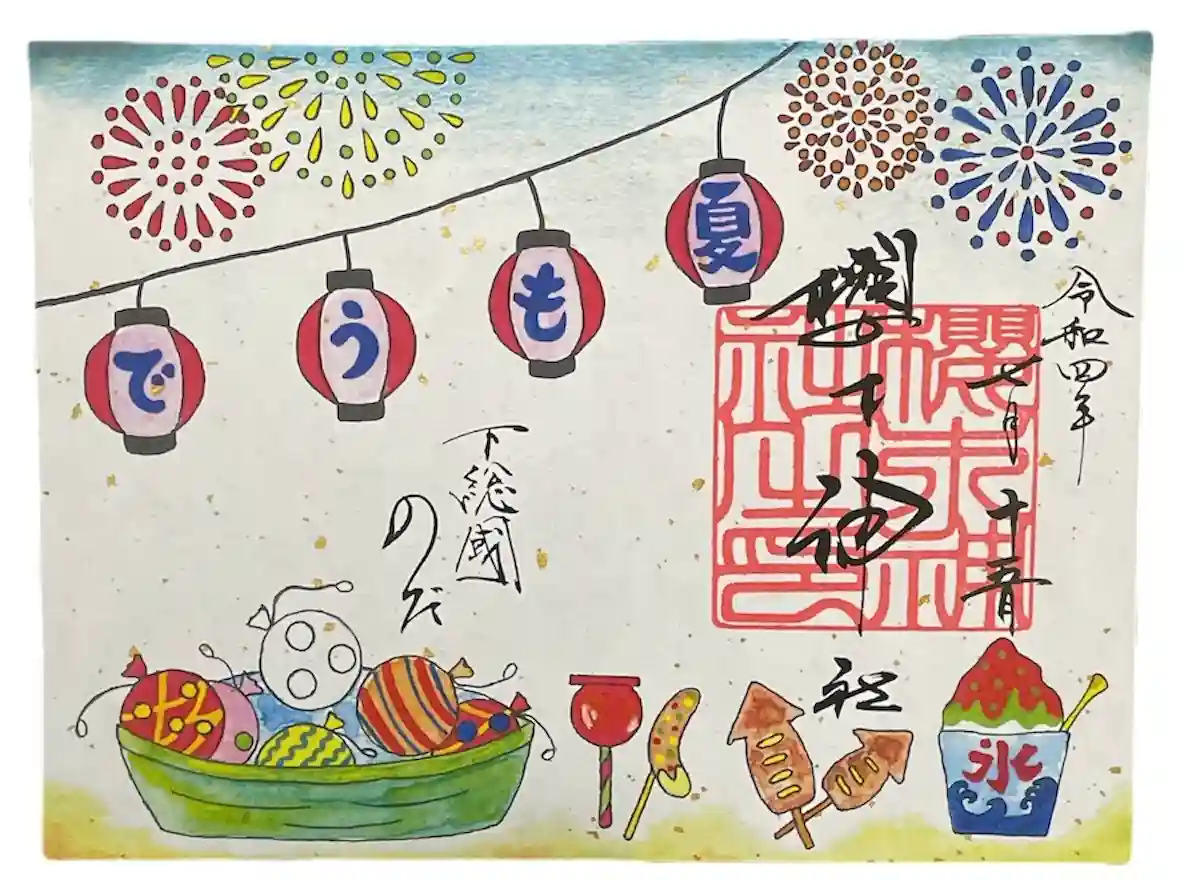 夏もうで
令和四年
七月十五日
櫻木神社
櫻木神
社之印
下総國
のだ
氷